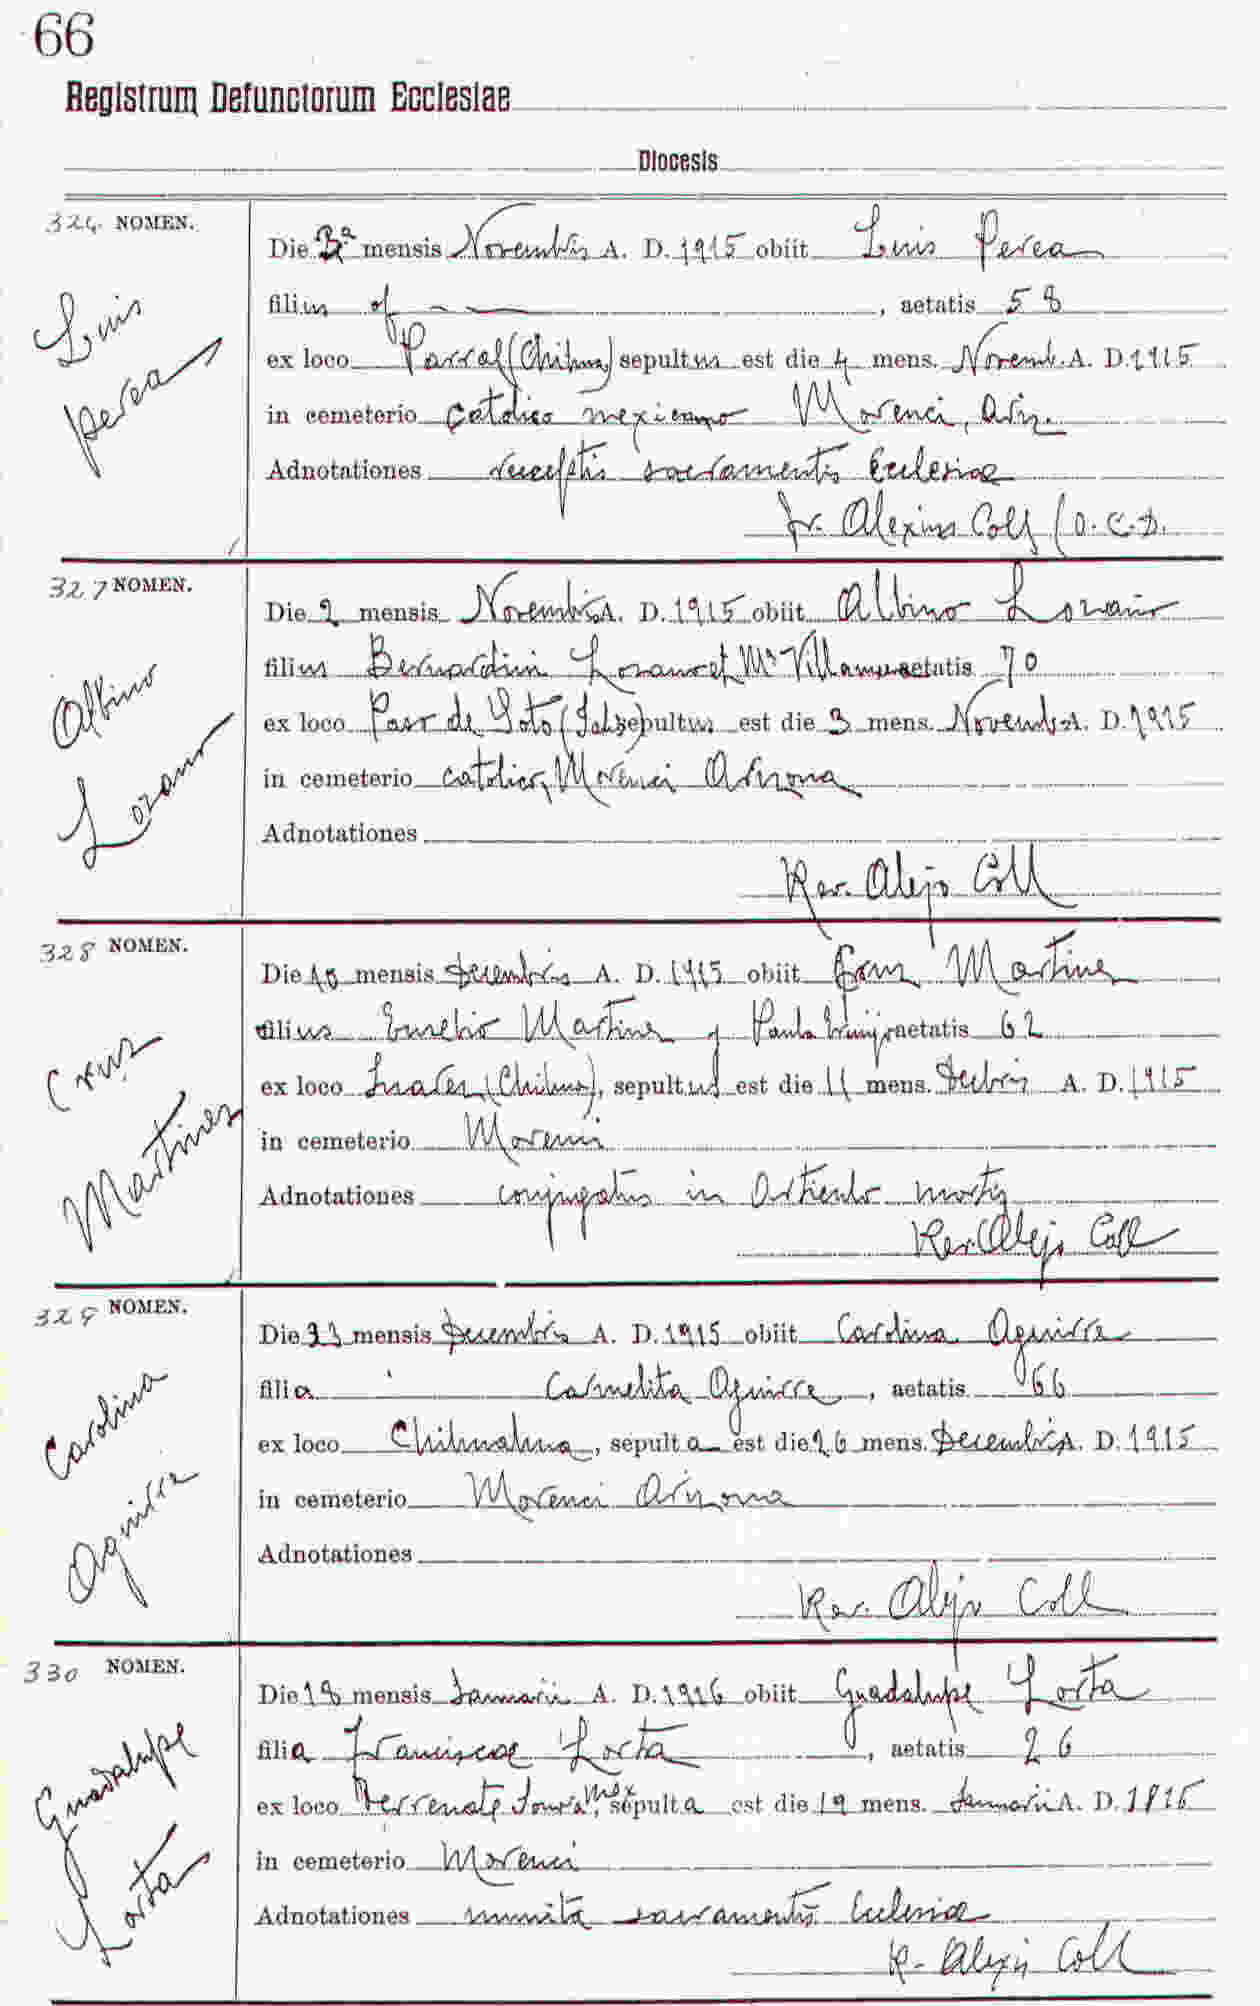 66
Registrum Defunctorum Ecclesiae
Diocesis
324 NOMEN.
Luis
Perea
Die 3ª mensis Novembris A. D. 1915 obiit Luis Perea
filius of — —, aetatis 58
ex loco Parral (Chihua) sepultus est die 4 mens. Novemb. A. D. 1915
in cemeterio catolico mexicano Morenci, Ariz.
Adnotationes receptis sacramentis Ecclesiae
fr. Alexius Coll O.C.D.
327 NOMEN.
Albino
Lozano
Die 2 mensis Novembris A. D. 1915 obiit Albino Lozano
filius Bernardini Lozano et Mª aetatis 70
ex loco Paso de Soto (Jalisc) sepultus est die 3 mens. Novemb. A. D. 1915
in cemeterio catolico, Morenci Arizona
Adnotationes
Rev. Alejo Coll
328 NOMEN.
Cruz
Martinez
Die 10 mensis Decembris A. D. 1915 obiit Cruz Martinez
filius Eusebio Martinez y Paula aetatis 62
ex loco (Chihua), sepultus est die 11 mens. Decbris A. D. 1915
in cemeterio Morenci
Adnotationes conjugatus in articulo mortis
Rev. Alejo Coll
329 NOMEN.
Carolina
Aguirre
Die mensis Decembris A. D. 1915 obiit Carolina Aguirre
filia Carmelita Aguirre, aetatis 66
ex loco Chihuahua, sepulta est die 26 mens. Decembris A. D. 1915
in cemeterio Morenci Arizona
Adnotationes
Rev. Alejo Coll
330 NOMEN.
Guadalupe
Lorta
Die 18 mensis Januarii A. D. 1916 obiit Guadalupe Lorta
filia Franciscae Lorta, aetatis 26
ex loco Terrenate Sonora, Mex sepulta est die 19 mens. Januarii A. D. 1916
in cemeterio Morenci
Adnotationes munita sacramentis Ecclesiae
R. Alexis Coll